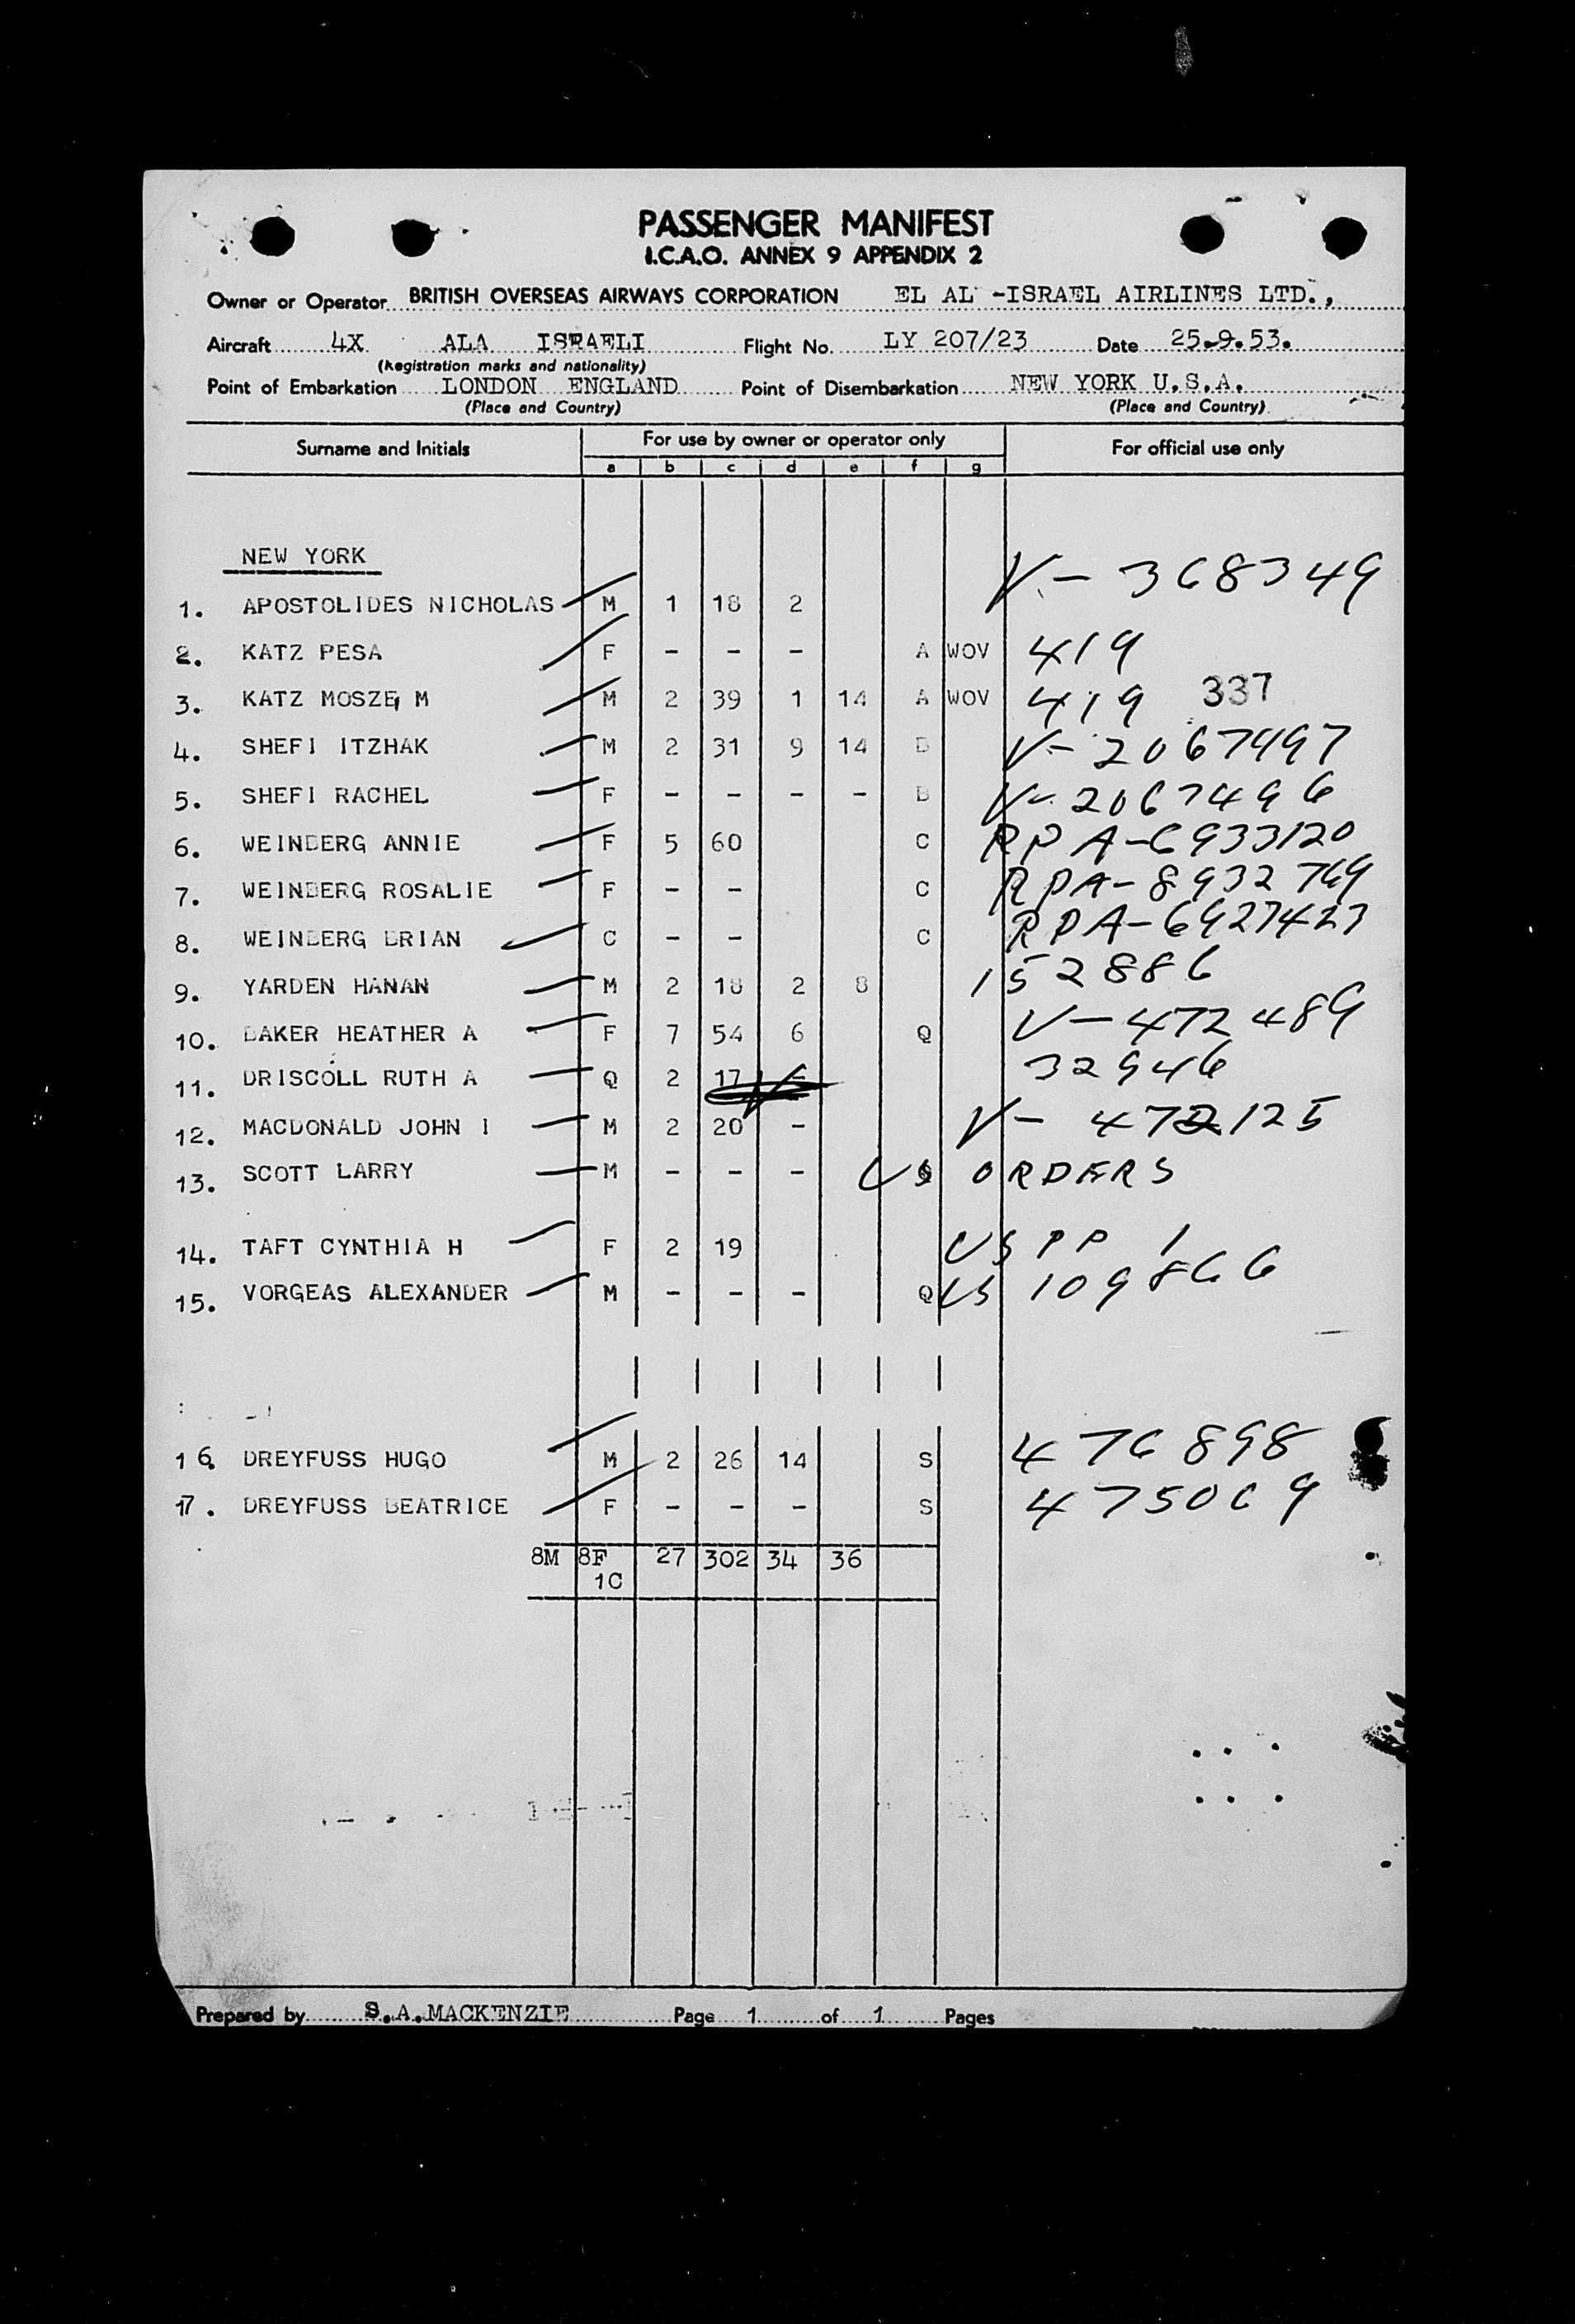 PASSENGER MANIFEST
I.C.A.O. ANNEX 9 APPENDIX 2
Owner or Operator BRITISH OVERSEAS AIRWAYS CORPORATION EL AL -ISRAEL AIRLINES LTD.,
Aircraft 4X ALA ISRAELI Flight No. LY 207/23 Date 25.9.53.
(Registration marks and nationality)
Point of Embarkation LONDON ENGLAND Point of Disembarkation NEW YORK U.S.A.
(Place and Country) (Place and Country)
Surname and Initials For use by owner or operator only For official use only
a b c d e f g
NEW YORK
1. APOSTOLIDES NICHOLAS M 1 18 2 V-368349
2. KATZ PESA F - - - A WOV 419
3. KATZ MOSZE M M 2 39 1 14 A WOV 419 337
4. SHEFI ITZHAK M 2 31 9 14 B V-2067497
5. SHEFI RACHEL F - - - - B V-2067496
6. WEINBERG ANNIE F 5 60 C RPA-6933120
7. WEINBERG ROSALIE F - - C RPA-8932769
8. WEINBERG BRIAN C - - C RPA-6927423
9. YARDEN HANAN M 2 18 2 8 152886
10. BAKER HEATHER A F 7 54 6 Q V-472489
11. DRISCOLL RUTH A Q 2 17 32946
12. MACDONALD JOHN I M 2 20 - V-472125
13. SCOTT LARRY M - - - US ORDERS
14. TAFT CYNTHIA H F 2 19 US PP 1
15. VORGEAS ALEXANDER M - - - Q US 109866
16. DREYFUSS HUGO M 2 26 14 S 476898
17. DREYFUSS BEATRICE F - - - S 475069
8M 8F 27 302 34 36
1C
Prepared by S.A.MACKENZIE Page 1 of 1 Pages